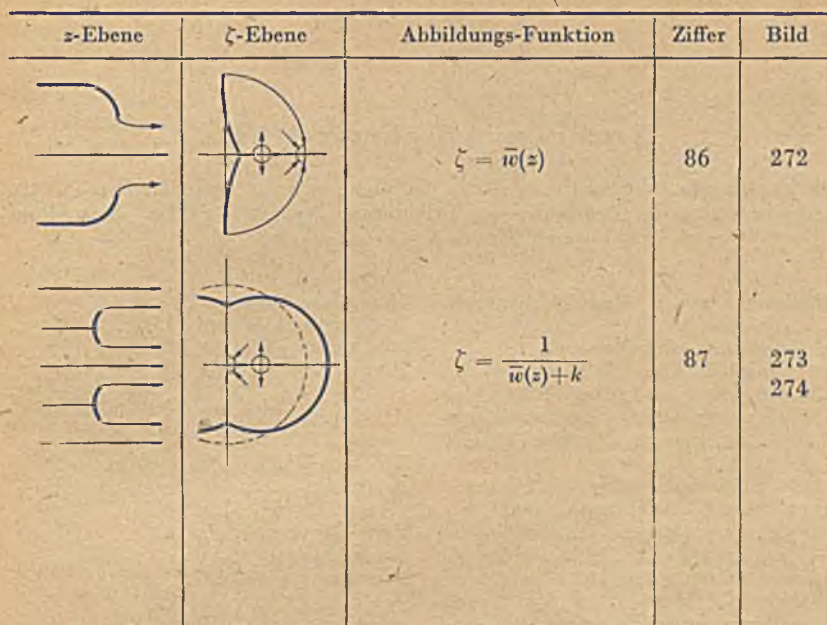 z-Ebene ζ-Ebene Abbildungs-Funktion Ziffer Bild
ζ = w̅(z) 86 272
ζ = 1 / (w̅(z)+k) 87 273
274